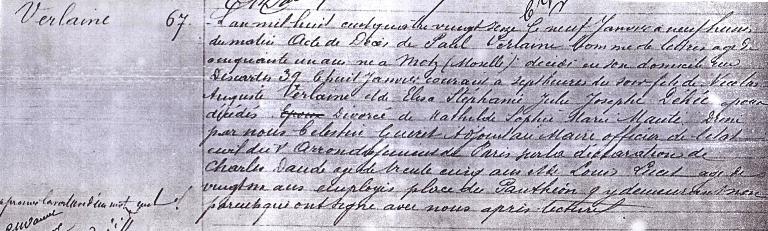 Verlaine 67.
L'an mil huit cent quatre vingt seize le neuf Janvier a neuf heures
du matin Acte de Décès de Paul Verlaine homme de lettres agé de
cinquante un ans né a Metz (Moselle) décédé en son domicile rue
Descartes 39 le huit Janvier courant a sept heures du soir fils de Nicolas
Auguste Verlaine et de Elisa Stéphanie Julie Josephe Dehée époux
décédés. Epoux Divorcé de Mathilde Sophie Marie Mauté. Dressé
par nous Celestin Gueret Adjoint au Maire officier de l'état
civil du V Arrondissement de Paris sur la déclaration de
Charles Daude agé de trente cinq ans et de Louis agé de
vingt ans employés place du Panthéon 9 y demeurant non
parents qui ont signé avec nous après lecture
approuvé la rature d'un mot nul